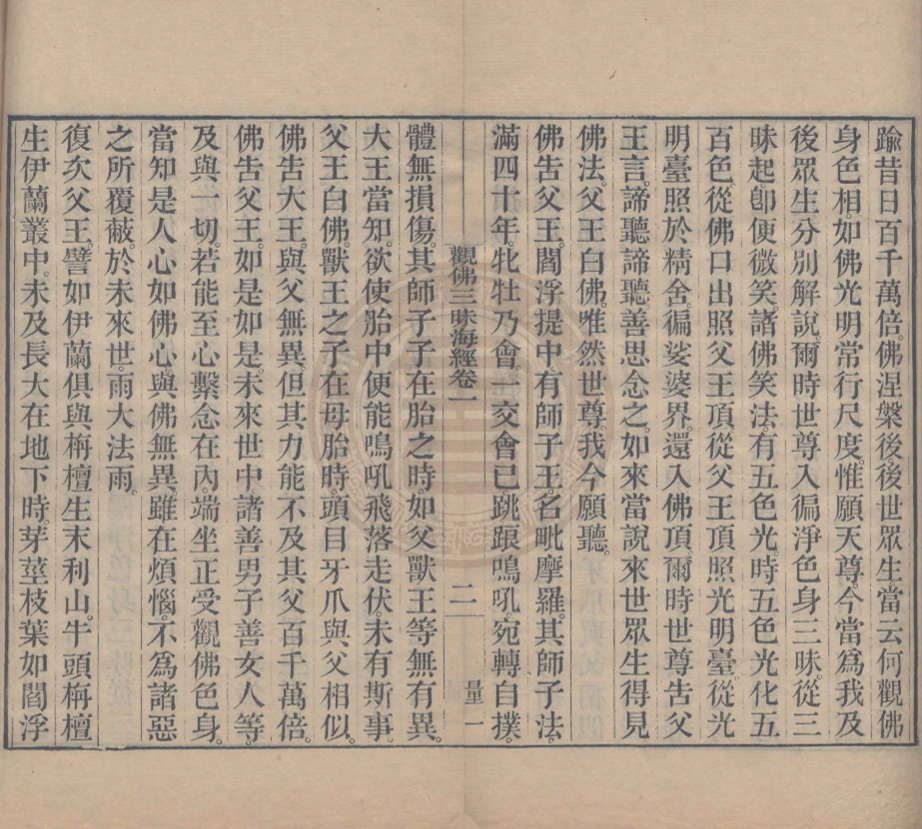 踰昔日百千萬倍。佛涅槃後。後世眾生當云何觀佛
身色相。如佛光明常行尺度。惟願天尊。今當爲我及
後眾生分別解說。爾時世尊入徧淨色身三昧。從三
昧起。卽便微笑。諸佛笑法。有五色光。時五色光化五
百色。從佛口出照父王頂。從父王頂照光明臺。從光
明臺照於精舍。徧娑婆界。還入佛頂。爾時世尊告父
王言。諦聽諦聽。善思念之。如來當說來世眾生得見
佛法。父王白佛。唯然世尊。我今願聽。
佛告父王。閻浮提中。有師子王。名毗摩羅。其師子法。
滿四十年。牝牡乃會。一交會已跳踉鳴吼。宛轉自撲。
觀佛三昧海經卷一 二 量一
體無損傷。其師子子在胎之時。如父獸王等無有異。
大王當知。欲使胎中便能鳴吼飛落走伏。未有斯事
父王白佛。獸王之子在母胎時。頭目牙爪與父相似。
佛告大王。與父無異。但其力能不及其父百千萬倍。
佛告父王。如是如是。未來世中諸善男子善女人等。
及與一切。若能至心繫念在內。端坐正受觀佛色身。
當知是人心如佛心。與佛無異。雖在煩惱。不爲諸惡
之所覆蔽。於未來世。雨大法雨。
復次父王。譬如伊蘭俱與栴檀生末利山。牛頭栴檀
生伊蘭叢中。未及長大在地下時。芽莖枝葉如閻浮